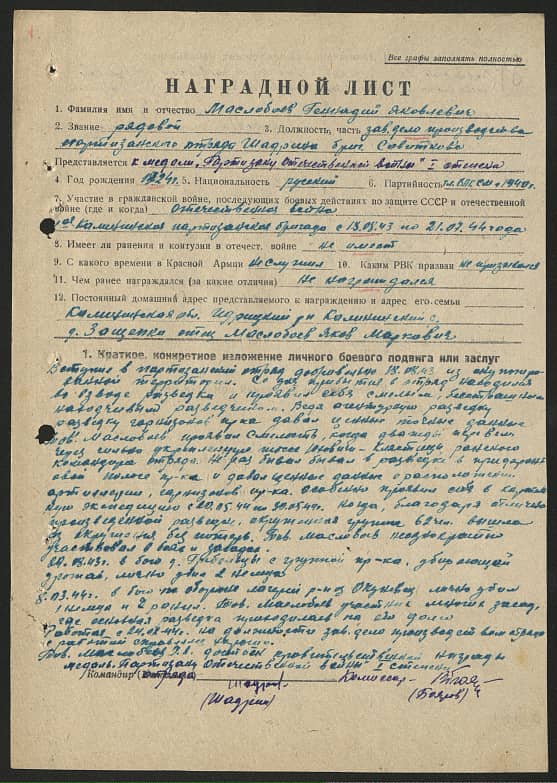 Все графы заполнять полностью
НАГРАДНОЙ ЛИСТ
1. Фамилия имя и отчество Маслобоев Геннадий Яковлевич
2. Звание рядовой 3. Должность, часть зав. дело производства
партизанского отряда Шадрина бриг.
Представляется к медали "Партизану Отечественной войны" I степени
4. Год рождения 1924г. 5. Национальность русский 6. Партийность чл. ВЛКСМ с 1940г.
7. Участие в гражданской войне, последующих боевых действиях по защите СССР и отечественной
войне (где и когда) Отечественная война
Калининская партизанская бригада с 18.08.43 по 21.07.44 года
8. Имеет ли ранения и контузии в отечест. войне не имеет
9. С какого времени в Красной Армии не служил 10. Каким РВК призван не призывался
11. Чем ранее награждался (за какие отличия) Не награждался
12. Постоянный домашний адрес представляемого к награждению и адрес его семьи
Калининская обл. Идрицкий р-н Калининский с.
д. Защепка отец Маслобоев Яков Маркович
1. Краткое, конкретное изложение личного боевого подвига или заслуг
Вступил в партизанский отряд добровольно 18.08.43 из оккупиро-
ванной территории. Со дня прибытия в отряд находился
во взводе разведки и проявил себя смелым, бесстрашным
находчивым разведчиком. Ведя агентурную разведку
разведку гарнизонов пр-ка давал ценные точные данные
Тов. Маслобоев проявил смелость, когда дважды перевёл
через сильно укреплённую шоссе раненого
командира отряда. Не раз бывал в разведке в
полосе пр-ка и доставлял данные о расположении
артиллерии, гарнизонов пр-ка. Особенно проявил себя в
экспедиции с 20.05.44 по 30.05.44г. Когда, благодаря отлично
произведенной разведки, окружённая группа 62 чел. вышла
из окружения без потерь. Тов. Маслобоев неоднократно
участвовал в боях и засадах.
в бою д. с группой пр-ка, убирающей
урожай, лично убил 2 немца
8.03.44г. в бою по обороне лагеря р-на лично убил
1 немца и 2 ранил. Тов. Маслобоев участник многих засад,
где основная разведка приходилась на его долю
Работая с на должности зав. дело производством отряда
с работой справлялся хорошо.
Тов. Маслобоев Г.Я. достоин правительственной награды
медаль "Партизану Отечественной войны" I степени
Командир отряда Комиссар
(Шадрин)